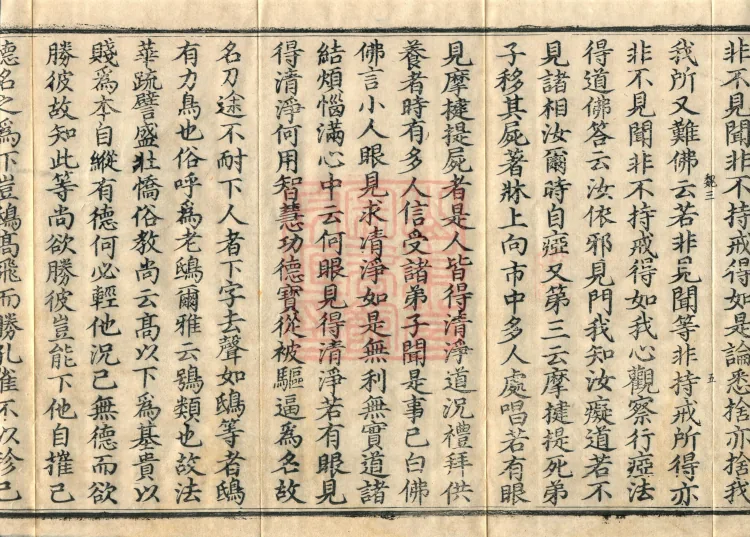 非不見聞非不持戒得如是論悉捨亦捨我
我所又難佛云若非見聞等非持戒所得亦
魏三
五
非不見聞非不持戒得如我心觀察行瘂法
得道佛答云汝依邪見門我知汝癡道若不
見諸相汝爾時自瘂又第三云摩揵提死弟
子移其屍著牀上向市中多人處唱若有眼
見摩揵提屍者是人皆得清淨道況禮拜供
養者時有多人信受諸弟子聞是事已白佛
佛言小人眼見求清淨如是無利無實道諸
結煩惱滿心中云何眼見得清淨若有眼見
得清淨何用智慧功德寶從被驅逼爲名故
名刀途不耐下人者下字去聲如鴟等者鴟
有力鳥也俗呼爲老鴟爾雅云鴞類也故法
華疏譬盛壯憍俗教尚云髙以下爲基貴以
賤爲本自縱有德何必輕他況己無德而欲
勝彼故知此等尚欲勝彼豈能下他自摧己
德名之爲下豈鴟髙飛而勝孔雀不以珍己